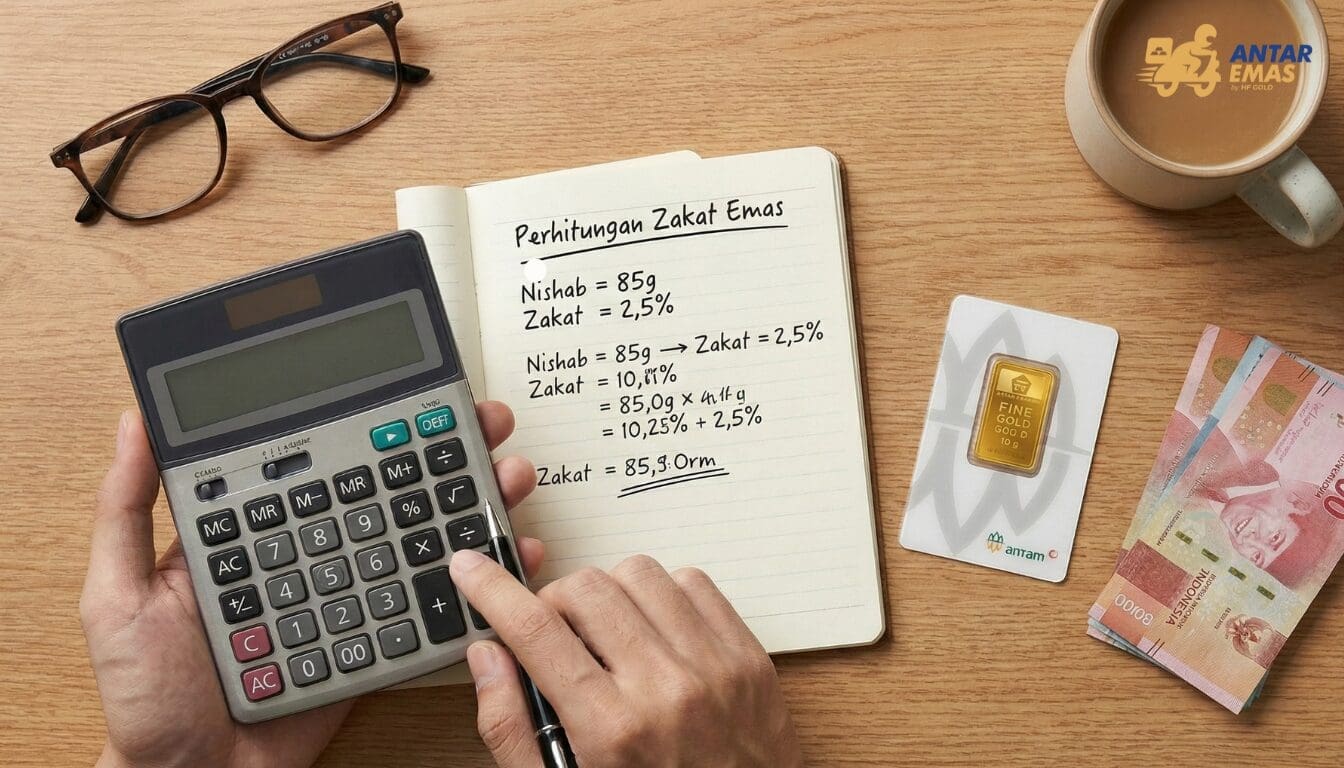 ANTAR
EMAS
by HF GOLD
Perhitungan Zakat Emas
Nishab = 85g
Zakat = 2,5%
Nishab = 85g → Zakat = 2,5%
Zakat = 10,
= 85,0g ×
= 10,25% + 2,5%
Zakat = 85,
OFF
M+
÷
MC
MR
M-
MR
%
√
AC
7
8
9
×
÷
+/-
4
5
6
+
C
1
2
3
AC
0
00
.
FINE
GOLD
10 g
antam
INDONESIA